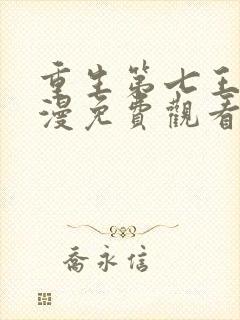 重生第七王
漫免費觀看
喬永信